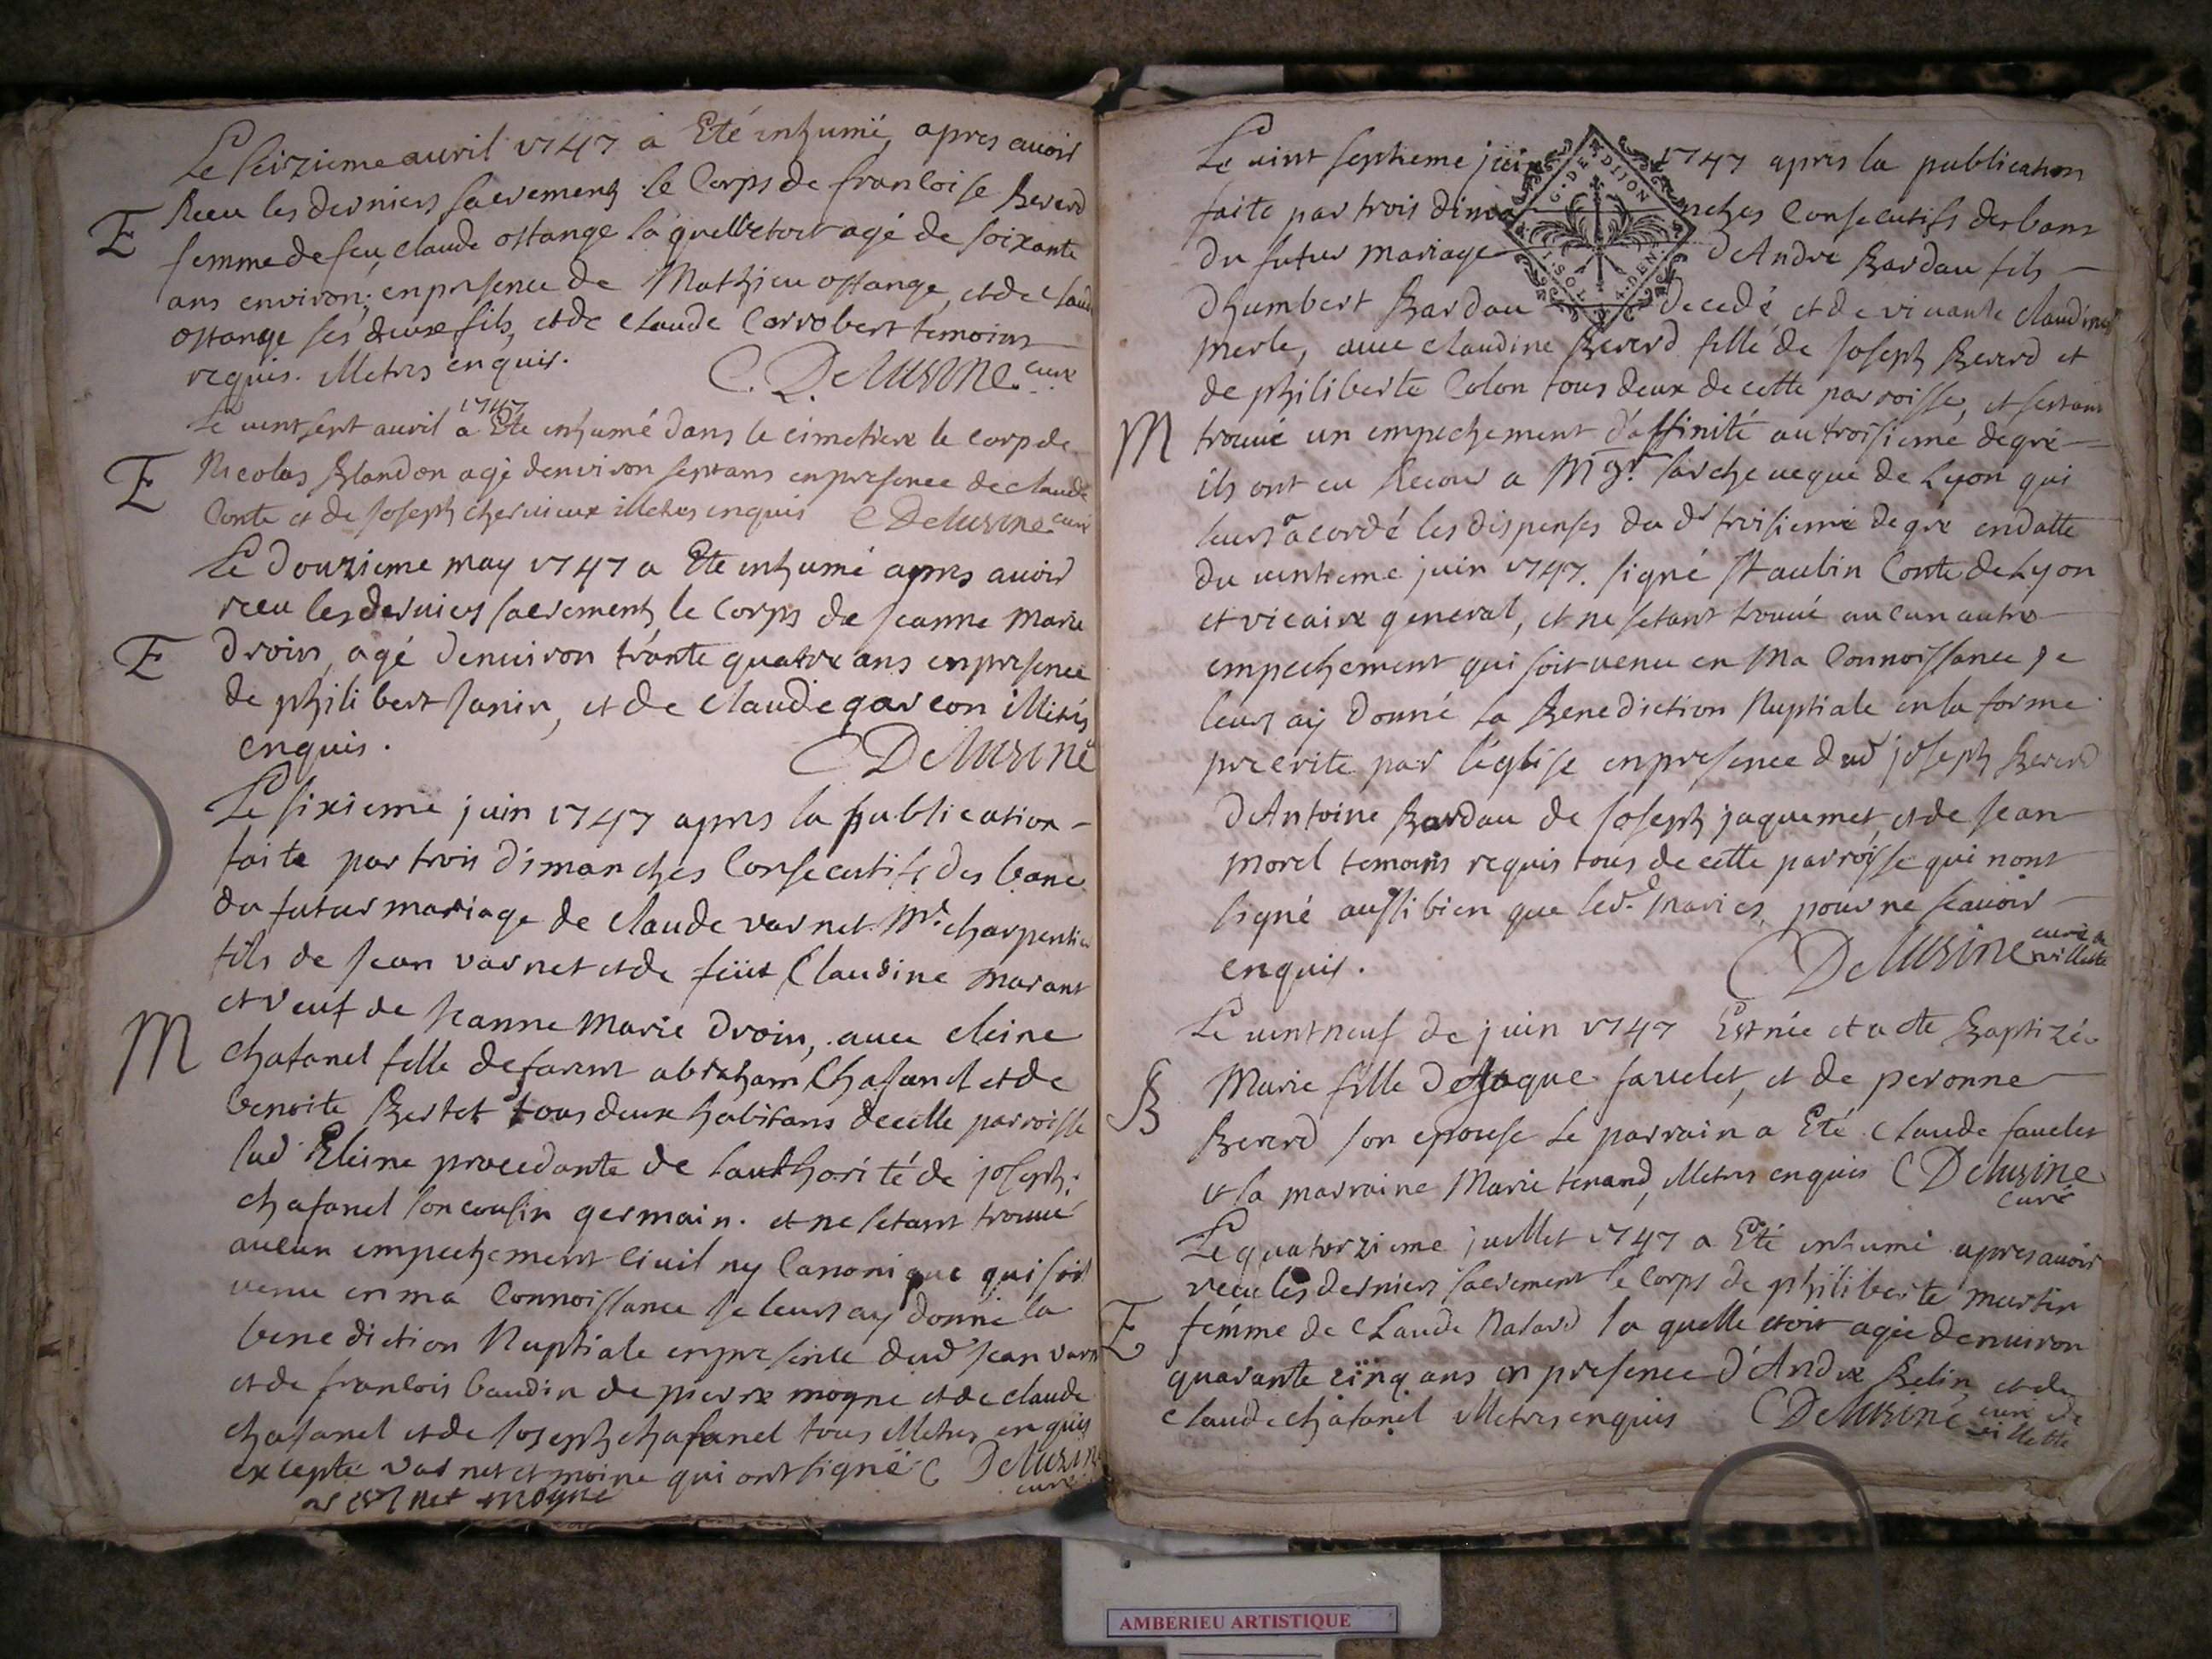 Le seizieme auril 1747 a Eté inhumé, apres auoir
Receu les derniers sacremens le Corps de francoise Bererd
E
femme de feu claude ostange laquelle etoit agé de soixante
ans environ; en presence de Mathieu ostange, et de claude
ostange ses deux fils, et de claude Carrobert temoins
requis. illetrés enquis. C. Delusine curé
1747
Le uintsept auril a Ete inhumé dans le cimetiere le corp de
E
Nicolas Blandon agé denviron sept ans en presence de claude
Conte et de Joseph cheruieux illetres enquis C Delusine curé
Le Douzieme may 1747 a Ete inhumé apres auoir
receu les derniers sacremens le Corps de Jeanne Marie
E
Droin, agé denuiron trante quatre ans en presence
de philibert Janin, et de claude garcon illitrés
enquis. C Delusine
Le sixieme juin 1747 apres la publication
faite par trois dimanches Consecutifs des bans
du futur mariage de claude varnet Me. charpentier
fils de Jean varnet et de feüe Claudine marant
et veuf de Jeanne Marie Droin, auec cleine
M
chafanel fille defunt abraham Chafanel et de
benoite Bertet tous deux habitans de cette parroisse
lad Eleine procedante de lauthorité de joseph
chafanel son cousin germain. et ne setant trouué
aucun empechement Ciuil ny Canonique qui soit
venu en ma Connoissance Je leurs ay donné la
benediction Nuptiale en presence dud Jean varn
et de francois baudin de pierre mogne et de claude
chafanel et de Joseph chafanel tous illetres enquis
excepté varnet et moine qui ont signé C Delusine
curé
varnet mogne
Le uint septieme juin 1747 apres la publication
faite par trois dimanches Consecutifs des bans
du futur Mariage de Andre Bardau fils
G. DE DIJON
Dhumbert Bardau decedé et de viuante claudine
merle, auec claudine Bererd fille de Joseph Bererd et
de philiberte Colon tous deux de cette parroisse, et sestant
M
trouué un empechement d'affinité au troisieme degré
ils ont eu Recour a Mgr. larcheueque de Lyon qui
leurs a cordé les dispenses du d troisieme degre en datte
du uintieme juin 1747. signé St aubin Conte de Lyon
et vicaire general, et ne setant trouué aucun autre
empechement qui soit venu en Ma Connoissance Je
leurs ay Donné la Benediction Nuptiale en la forme
precrite par l'eglise en presence dud joseph Bererd
D'Antoine Bardau de Joseph jaquemet, et de Jean
morel temoins requis tous de cette parroisse qui nont
signé aussi bien que led. mariés pour ne scauoir
enquis. C Delusine curé de villette
Le uint neuf de juin 1747 Est née et a ete Baptizée
B
Marie fille de Jaque fauelet, et de peronne
Bererd son epouse Le parrain a Eté claude fauelet
et la marraine Marie tenand, illetres enquis C Delusine
curé
Le quatorzieme juillet 1747 a Eté inhumé apres auoir
receu les derniers sacrement le Corps de philiberte martin
E
femme de Claude Ratard laquelle etoit agée denuiron
quarante cinq ans en presence d'Andre Belin et de
claude chafanel illetres enquis C Delusine curé de
villette
AMBERIEU ARTISTIQUE